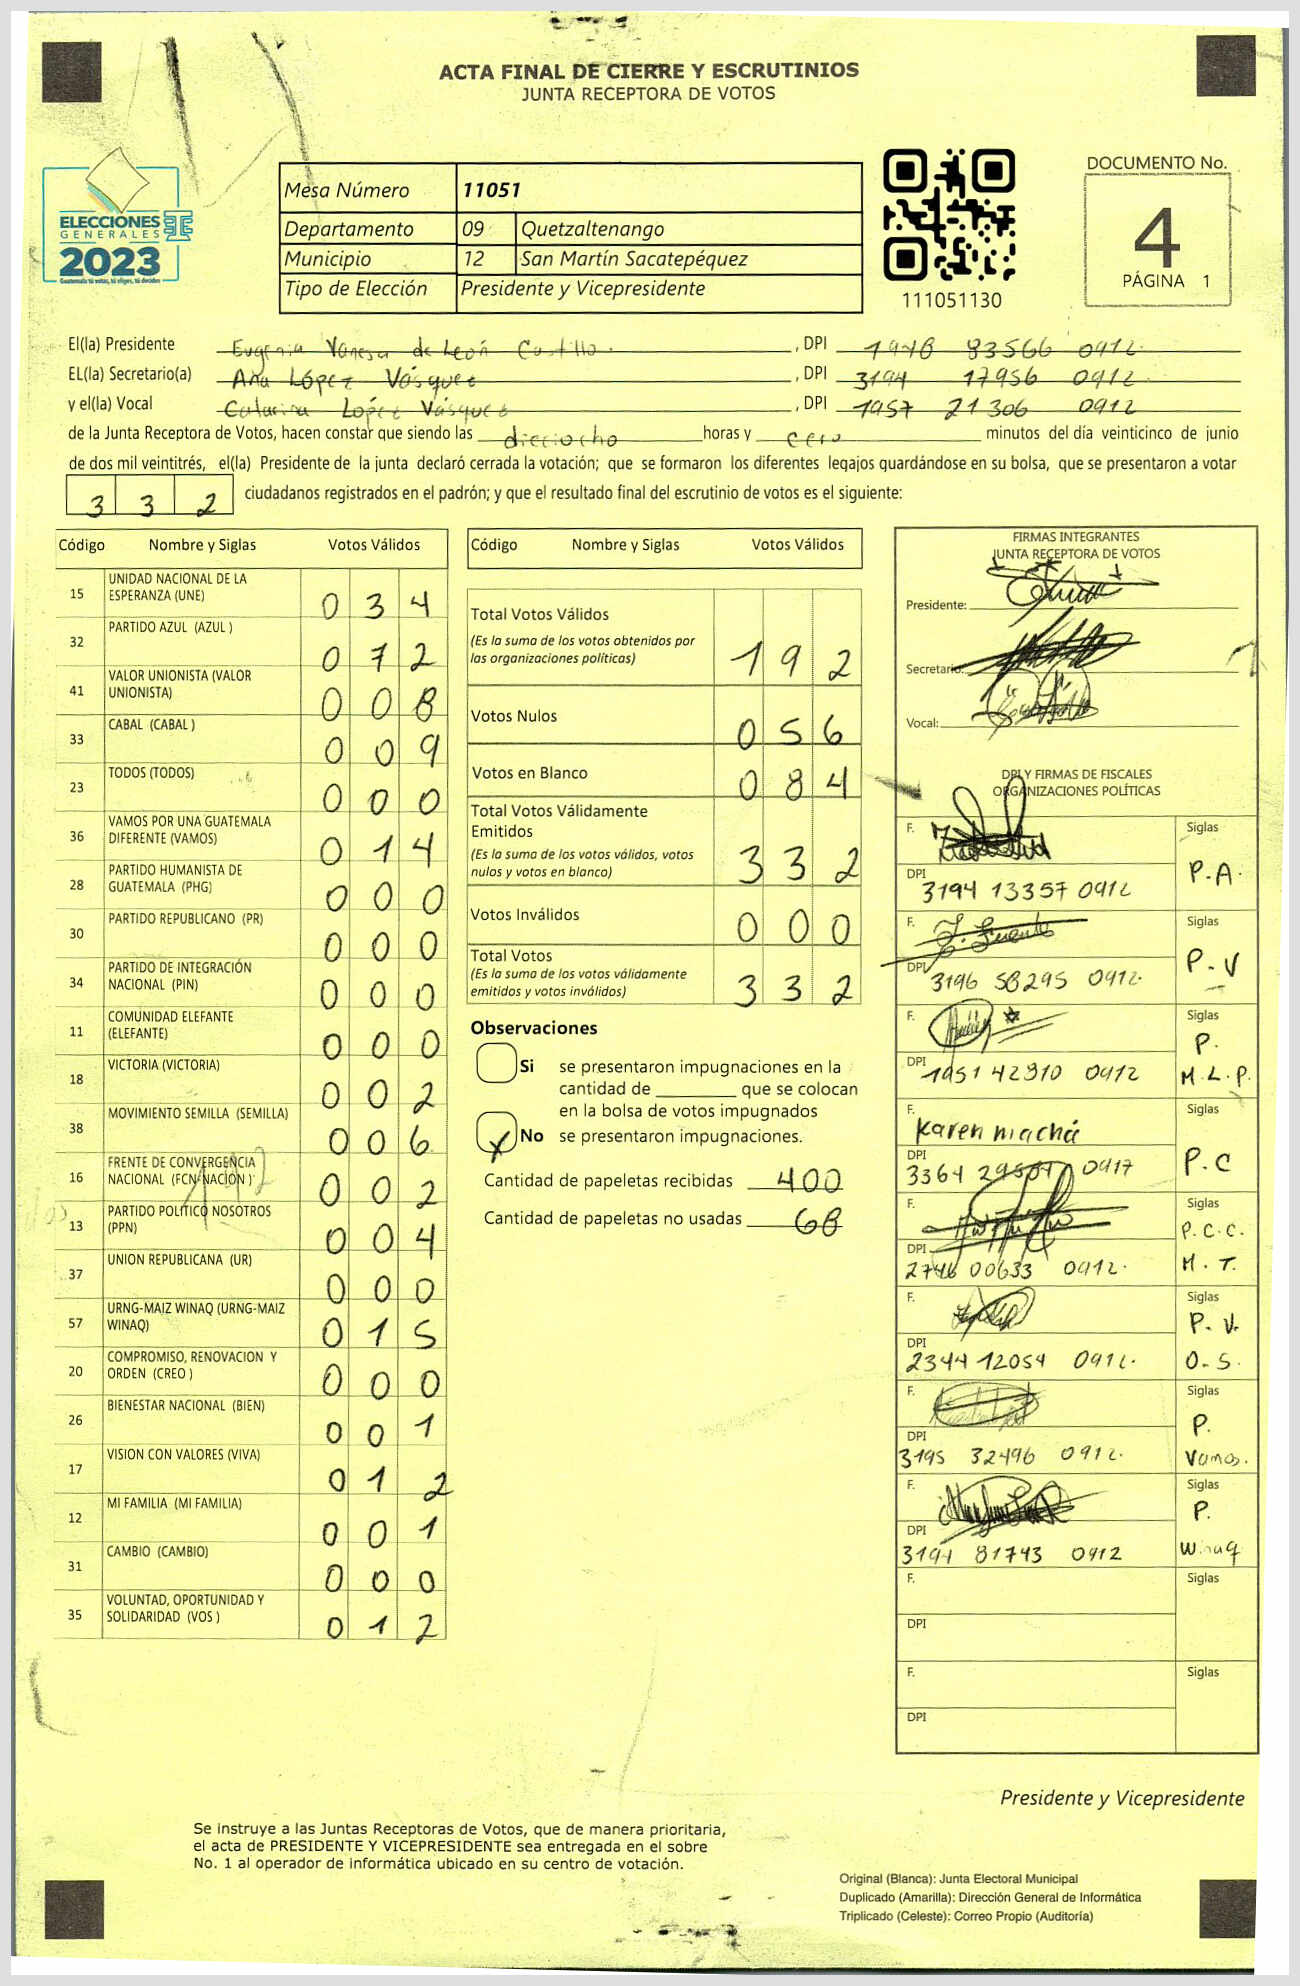 ACTA FINAL DE CIERRE Y ESCRUTINIOS
JUNTA RECEPTORA DE VOTOS
ELECCIONES
GENERALES
2023
Mesa Número 11051
Departamento 09 Quetzaltenango
Municipio 12 San Martín Sacatepéquez
Tipo de Elección Presidente y Vicepresidente
111051130
DOCUMENTO No.
4
PÁGINA 1
El(la) Presidente Eugenia Vanesa de León Castillo. , DPI 1948 83566 0912
EL(la) Secretario(a) Ana López Vásquez , DPI 3194 17956 0912
y el(la) Vocal Catarina López Vásquez , DPI 1957 21306 0912
de la Junta Receptora de Votos, hacen constar que siendo las dieciocho horas y cero minutos del día veinticinco de junio
de dos mil veintitrés, el(la) Presidente de la junta declaró cerrada la votación; que se formaron los diferentes legajos guardándose en su bolsa, que se presentaron a votar
332 ciudadanos registrados en el padrón; y que el resultado final del escrutinio de votos es el siguiente:
Código Nombre y Siglas Votos Válidos
15 UNIDAD NACIONAL DE LA ESPERANZA (UNE) 034
32 PARTIDO AZUL (AZUL ) 072
41 VALOR UNIONISTA (VALOR UNIONISTA) 008
33 CABAL (CABAL ) 009
23 TODOS (TODOS) 000
36 VAMOS POR UNA GUATEMALA DIFERENTE (VAMOS) 014
28 PARTIDO HUMANISTA DE GUATEMALA (PHG) 000
30 PARTIDO REPUBLICANO (PR) 000
34 PARTIDO DE INTEGRACIÓN NACIONAL (PIN) 000
11 COMUNIDAD ELEFANTE (ELEFANTE) 000
18 VICTORIA (VICTORIA) 002
38 MOVIMIENTO SEMILLA (SEMILLA) 006
16 FRENTE DE CONVERGENCIA NACIONAL (FCN-NACIÓN ) 002
192
13 PARTIDO POLÍTICO NOSOTROS (PPN) 004
37 UNION REPUBLICANA (UR) 000
57 URNG-MAIZ WINAQ (URNG-MAIZ WINAQ) 015
20 COMPROMISO, RENOVACION Y ORDEN (CREO ) 000
26 BIENESTAR NACIONAL (BIEN) 001
17 VISION CON VALORES (VIVA) 012
12 MI FAMILIA (MI FAMILIA) 001
31 CAMBIO (CAMBIO) 000
35 VOLUNTAD, OPORTUNIDAD Y SOLIDARIDAD (VOS ) 012
Código Nombre y Siglas Votos Válidos
Total Votos Válidos
(Es la suma de los votos obtenidos por
las organizaciones políticas) 192
Votos Nulos 056
Votos en Blanco 084
Total Votos Válidamente
Emitidos
(Es la suma de los votos válidos, votos
nulos y votos en blanco) 332
Votos Inválidos 000
Total Votos
(Es la suma de los votos válidamente
emitidos y votos inválidos) 332
Observaciones
Si se presentaron impugnaciones en la
cantidad de ________ que se colocan
en la bolsa de votos impugnados
X No se presentaron impugnaciones.
Cantidad de papeletas recibidas 400
Cantidad de papeletas no usadas 68
FIRMAS INTEGRANTES
JUNTA RECEPTORA DE VOTOS
Presidente:
Secretario:
Vocal:
DPI Y FIRMAS DE FISCALES
ORGANIZACIONES POLÍTICAS
F. Siglas
DPI 3194 13357 0912 P.A.
F. Siglas
DPI 3196 58295 0912. P-V
F. Siglas
DPI 1951 42910 0912 P. M.L.P.
F. Karen machá Siglas
DPI 3364 0917 P.C
F. Siglas
DPI 2746 00633 0912. P.C.C. M.T.
F. Siglas
DPI 2344 12054 0912. P.V. O.S.
F. Siglas
DPI 3195 32496 0912. P. Vamos.
F. Siglas
DPI 3191 81743 0912 P. Winaq
F. Siglas
DPI
F. Siglas
DPI
Presidente y Vicepresidente
Se instruye a las Juntas Receptoras de Votos, que de manera prioritaria,
el acta de PRESIDENTE Y VICEPRESIDENTE sea entregada en el sobre
No. 1 al operador de informática ubicado en su centro de votación.
Original (Blanca): Junta Electoral Municipal
Duplicado (Amarilla): Dirección General de Informática
Triplicado (Celeste): Correo Propio (Auditoría)